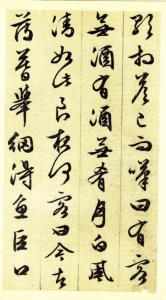 歌相答已而嘆曰有客
無酒有酒無肴月白風
清如此良夜何客曰今者
薄暮舉網得魚巨口